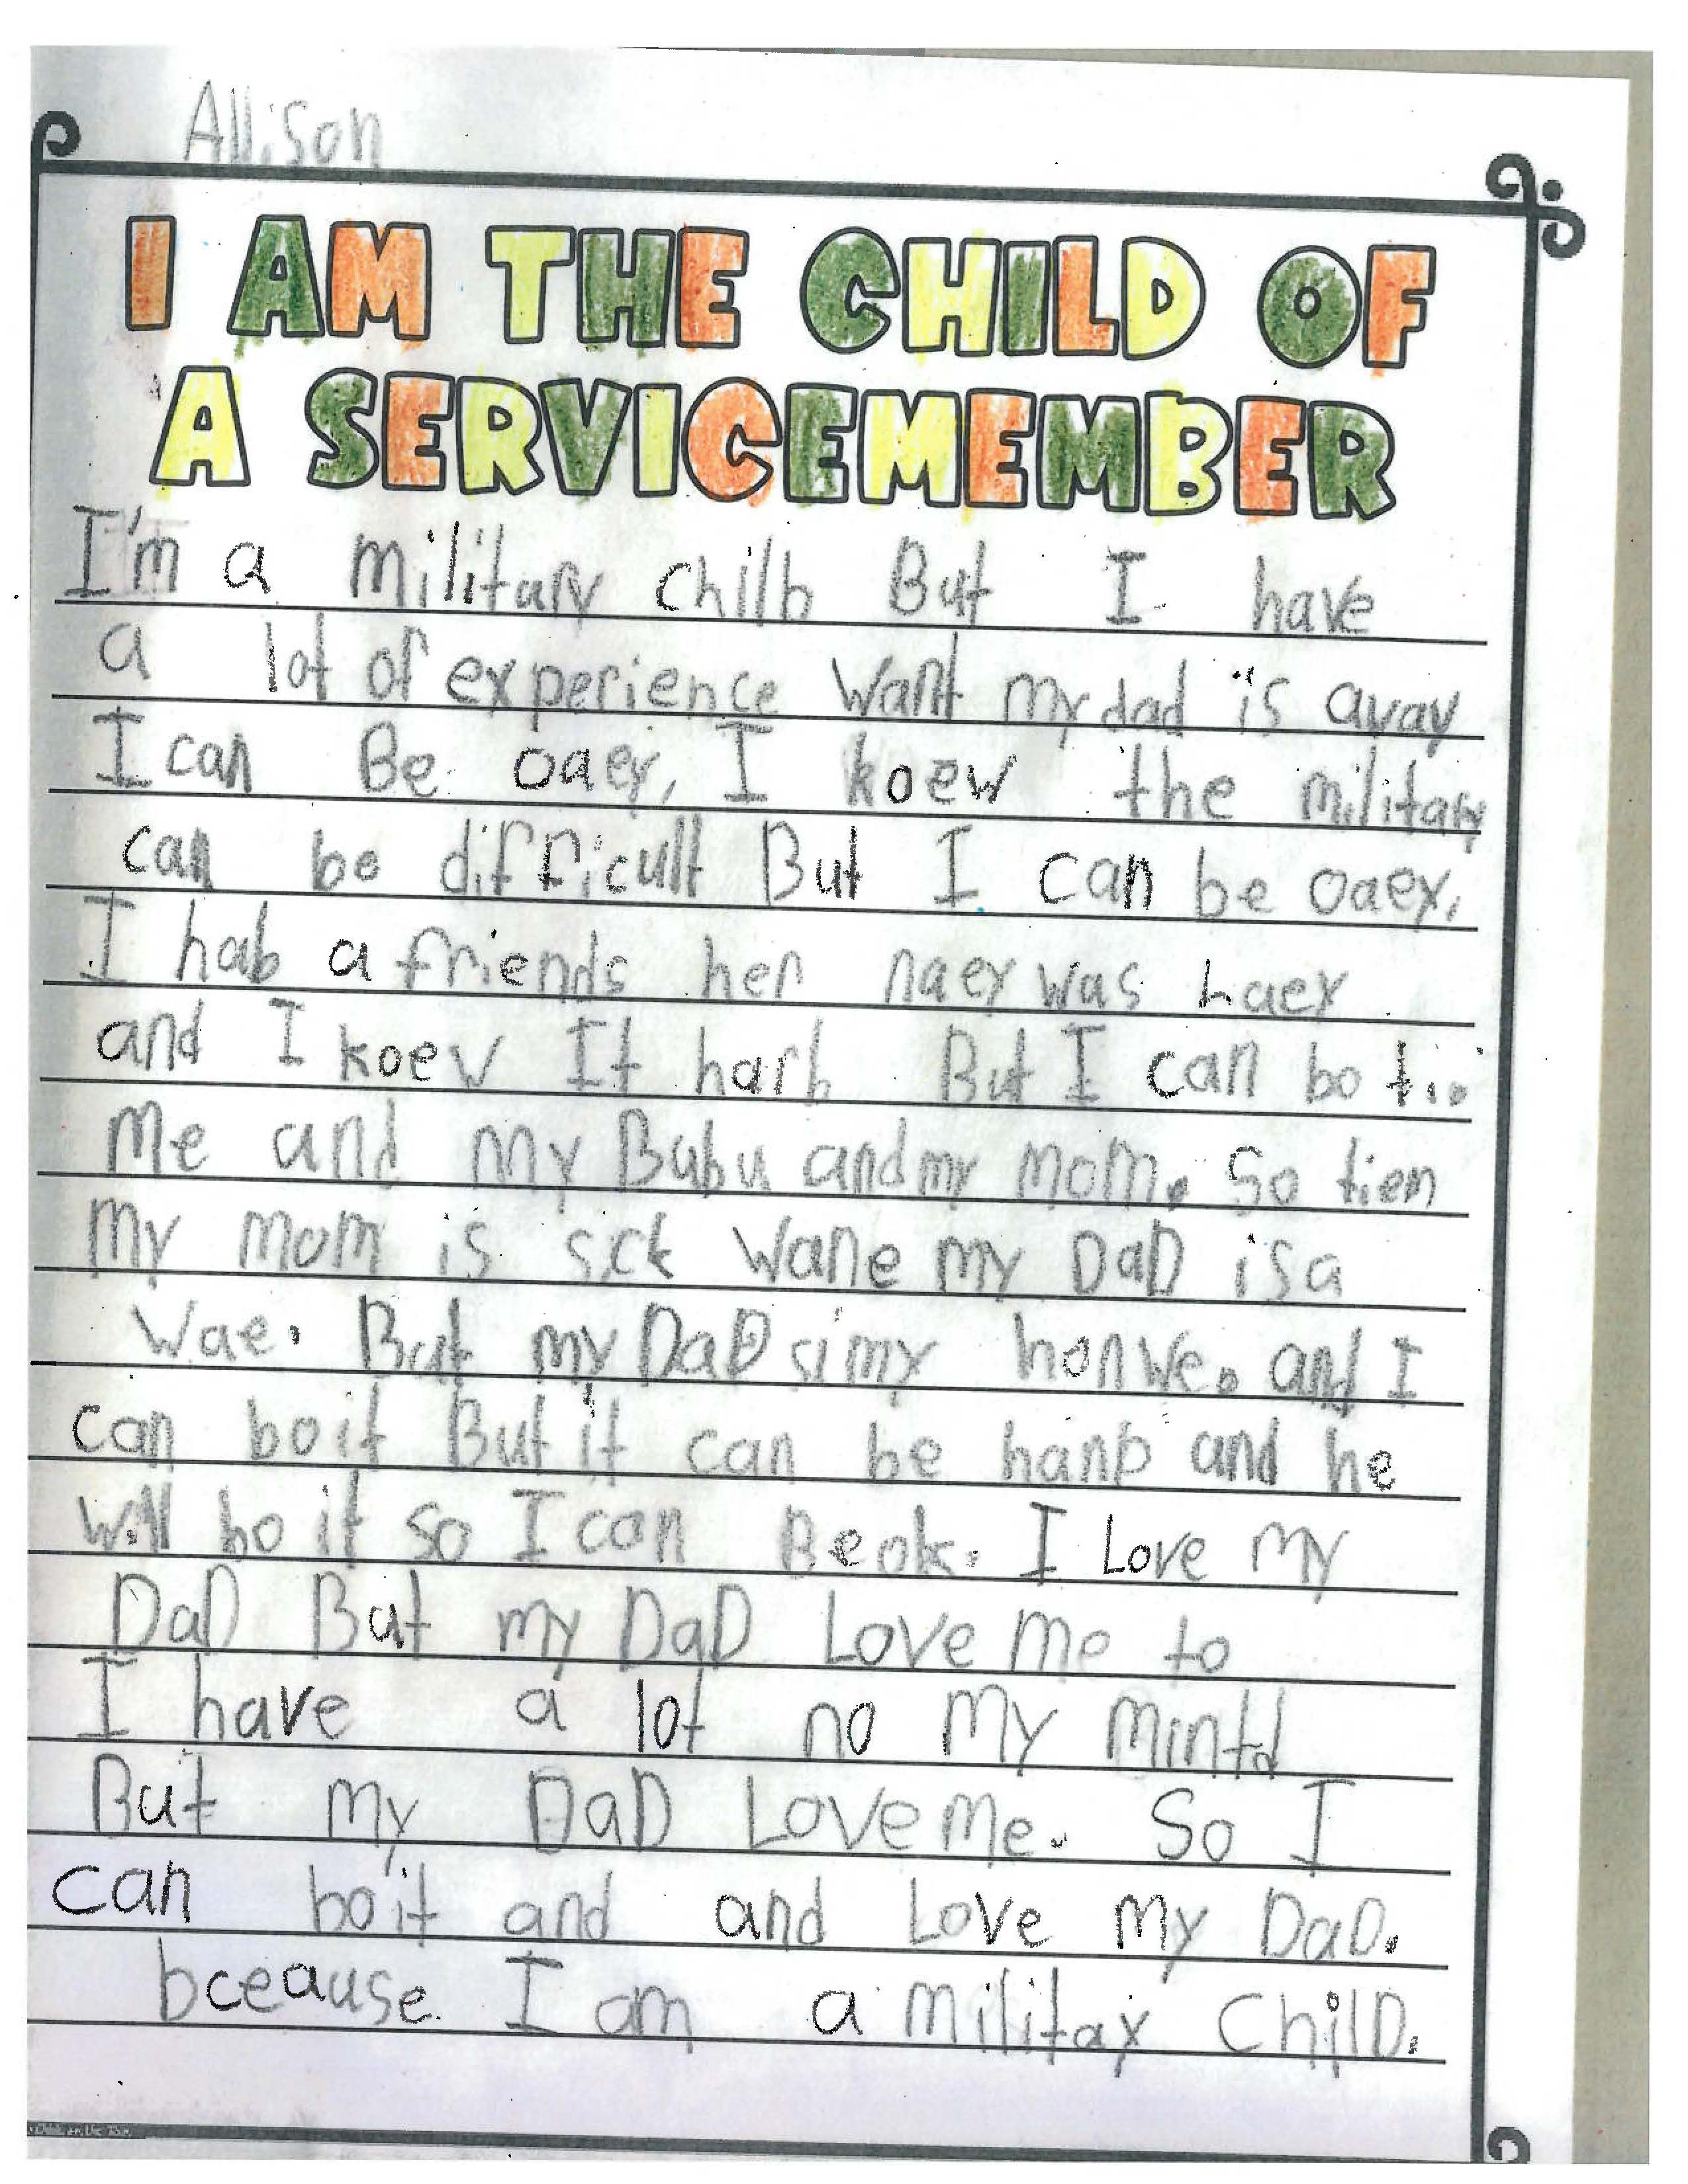 Allison
I AM THE CHILD OF
A SERVICEMEMBER
I'm a military chilb But I have
a lot of experience want my dad is avay
I can Be oaey, I koew the military
can be difficult But I can be oaey.
I hab a friends her naey was haey
and I koev It harb But I can bo tio
me and my Babu and my mom. So tiem
my mom is sck wane my DaD is a
wae. But my DaD si my honwe. and I
can bo it But it can be hanb and he
will bo it so I can Be ok. I Love my
DaD But my DaD Love me to
I have a lot no my mintd
But my DaD Love me. So I
can bo it and and Love my DaD.
bceause I am a militay ChilD.